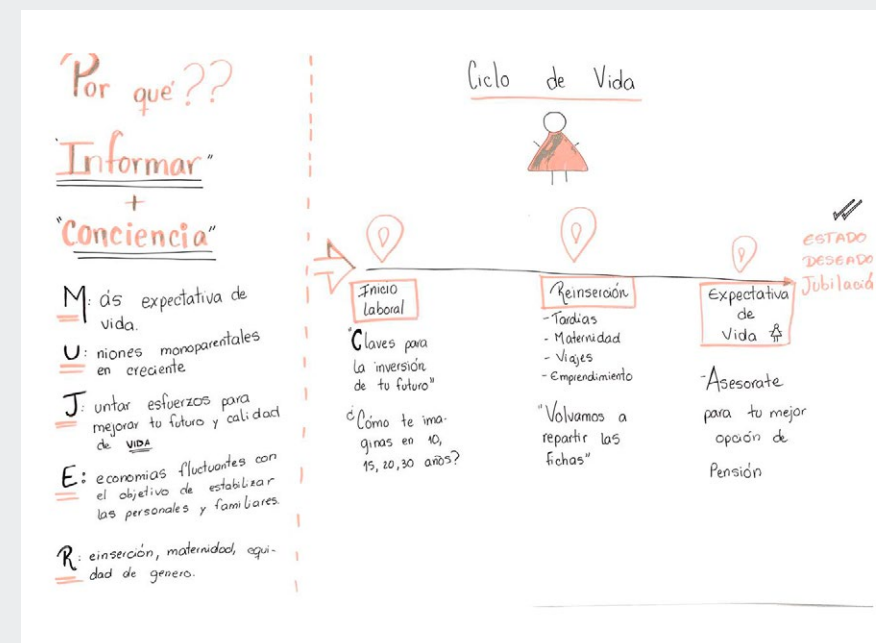 "Por qué??
"Informar"
+
"Conciencia"
M: ás expectativa de
vida.
U: niones monoparentales
en creciente
J: untar esfuerzos para
mejorar tu futuro y calidad
de VIDA
E: economias fluctuantes con
el objetivo de estabilizar
las personales y familiares.
R: einserción, maternidad, equi-
dad de genero.
Ciclo de Vida
Inicio
laboral
"Claves para
la inversión
de tu futuro"
¿Cómo te ima-
ginas en 10,
15, 20, 30 años?
Reinserción
- Tardías
- Maternidad
- Viajes
- Emprendimiento
"Volvamos a
repartir las
fichas"
Expectativa
de
Vida
-Asesorate
para tu mejor
opción de
Pensión
ESTADO
DESEADO
Jubilació